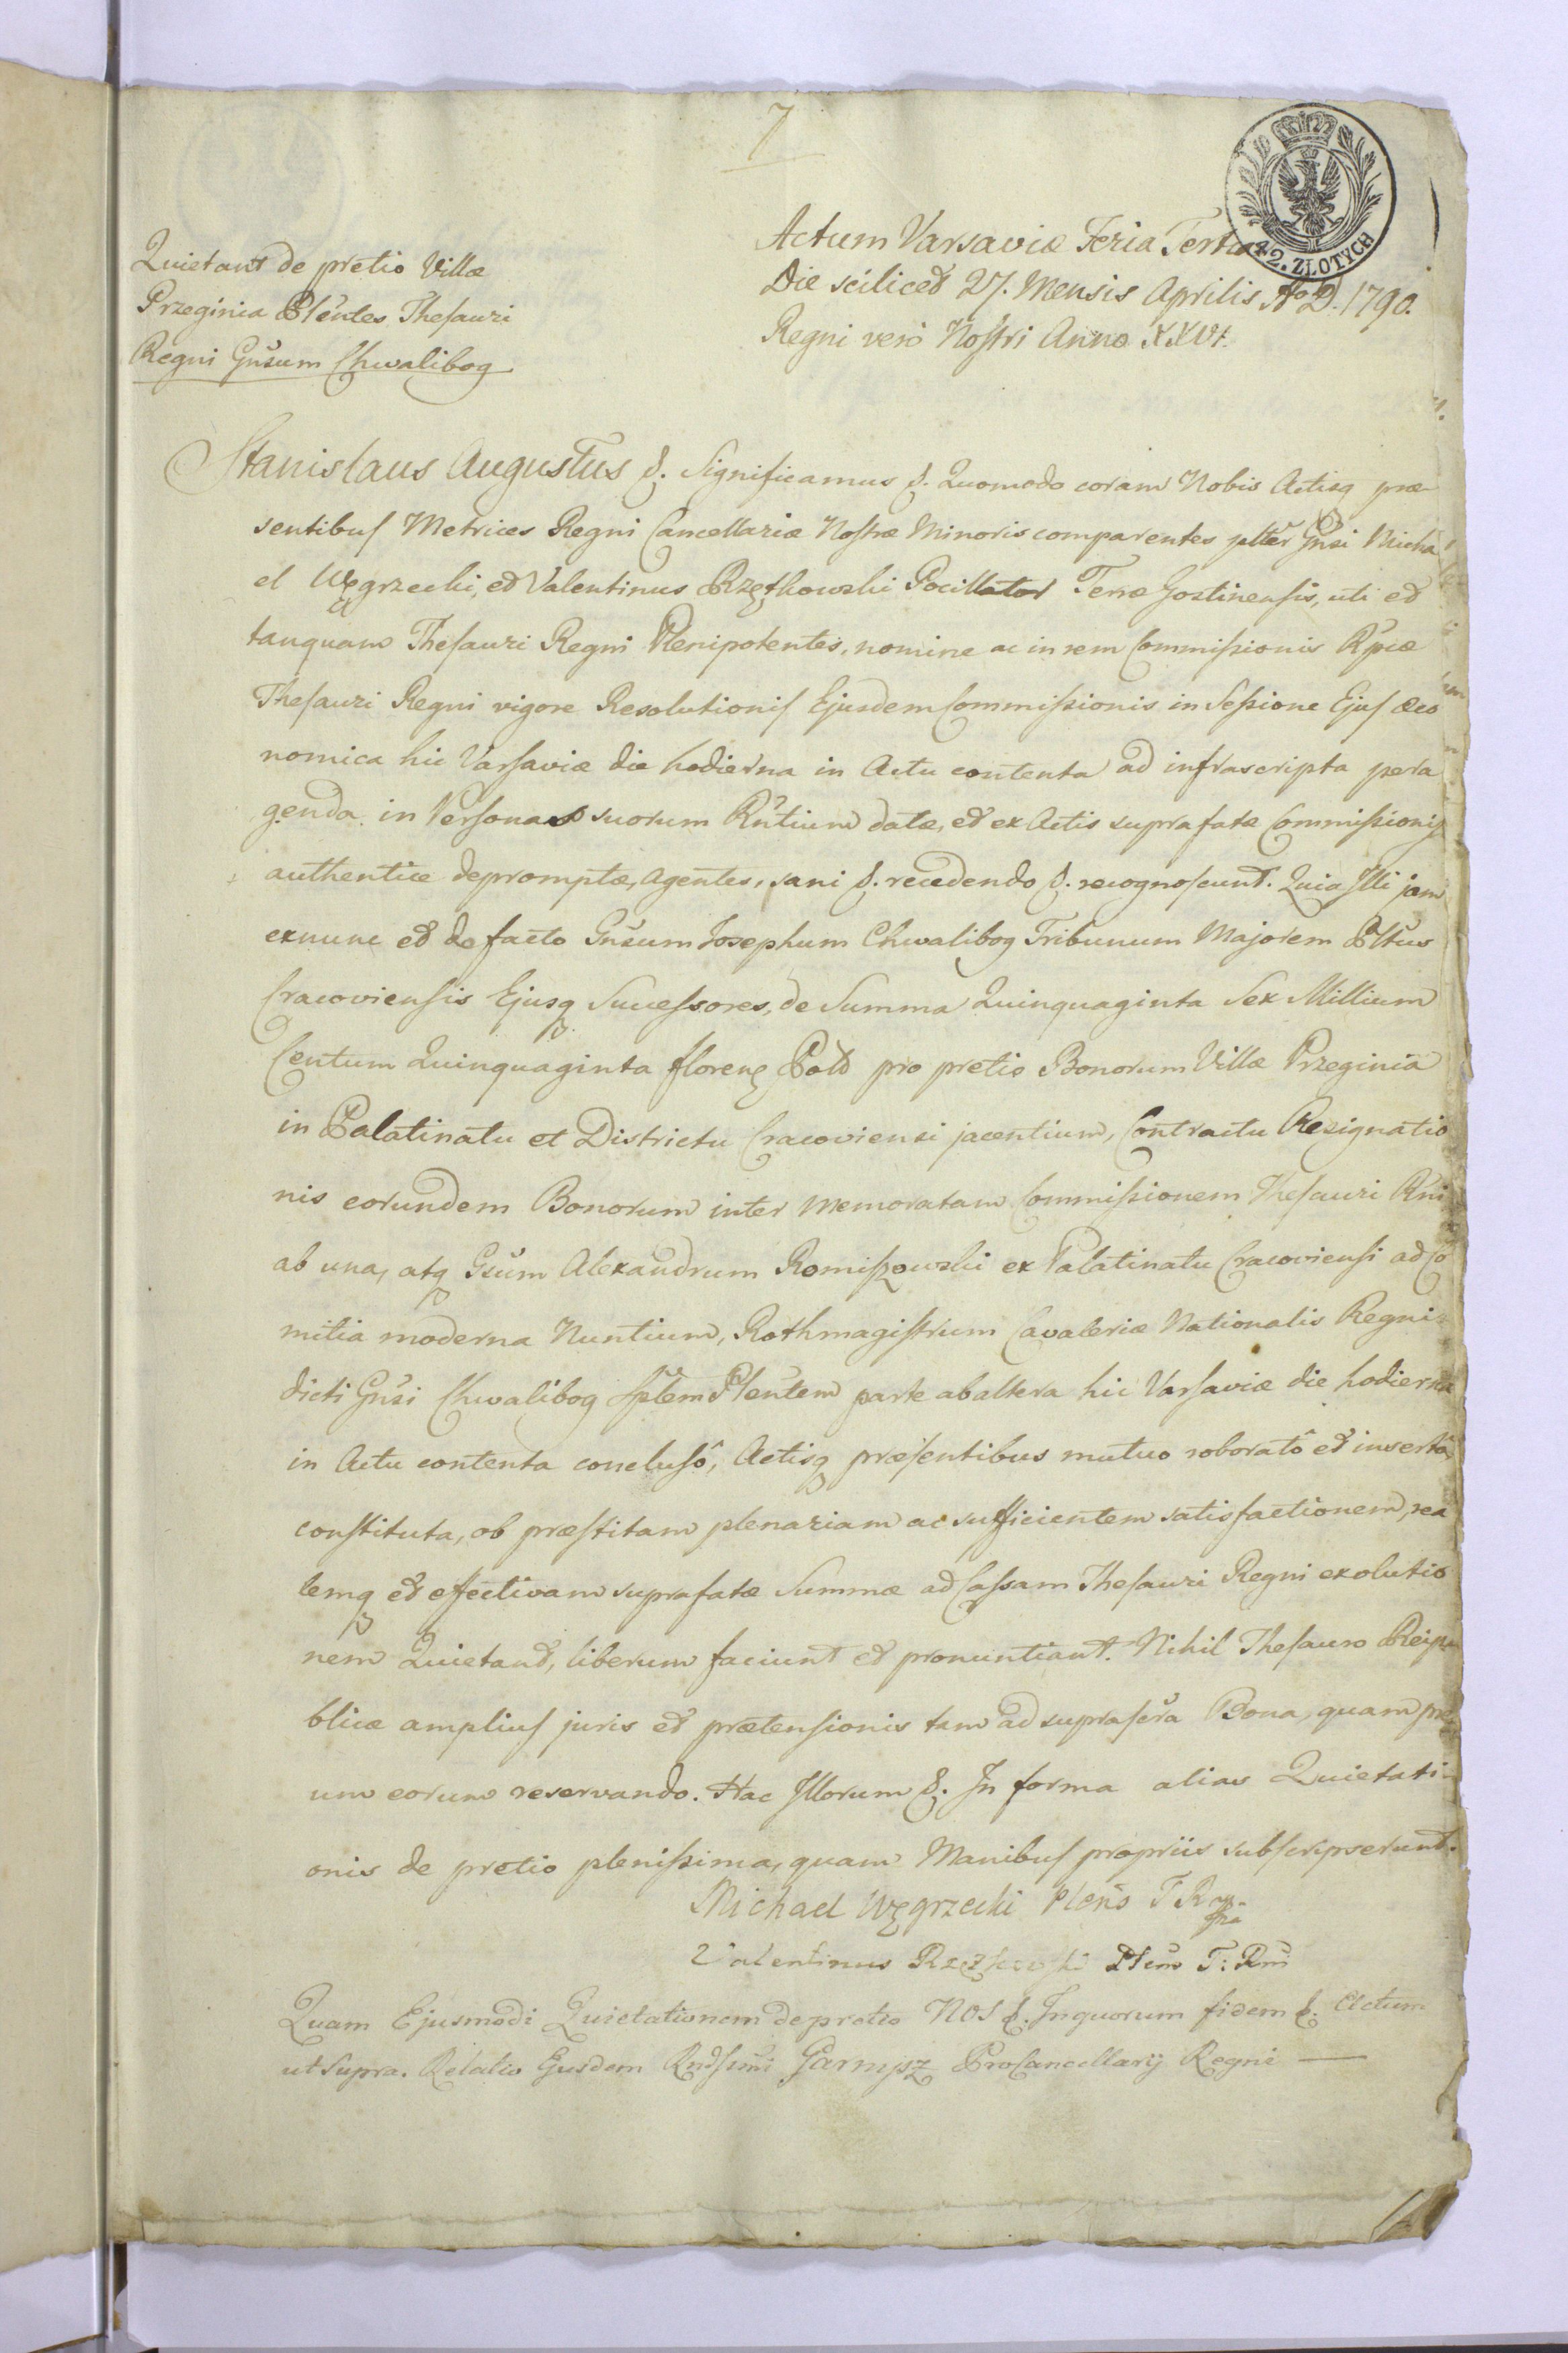 7
42. ZŁOTYCH
Quietant de pretio Villæ
Przeginia Plentes Thesauri
Regni Gnsum Chwalibog
Actum Varsaviæ Feria Tertia
Die scilicet 27. Mensis Aprilis Ao D. 1790.
Regni vero Nostri Anno XXVI.
Stanislaus Augustus &. Significamus &. Quomodo coram Nobis Actisq præ
sentibus Metrices Regni Cancellariæ Nostræ Minoris comparentes plter Gnsi Micha
el Węgrzecki, et Valentinus Rzętkowski Pocillator Terræ Gostinensis, uti et
tanquam Thesauri Regni Plenipotentes, nomine ac in rem Commissionis Rpcæ
Thesauri Regni vigore Resolutionis Ejusdem Commissionis in Sessione Ejus Oeco
nomica hic Varsaviæ die hodierna in Actu contenta ad infrascripta pera
genda in Personas suorum Rntium datæ, et ex Actis suprafatæ Commissionis
authentice depromptæ, Agentes, sani &. recedendo &. recognoscunt. Quia Illi jam
exnunc et de facto Gnsum Josephum Chwalibog Tribunum Majorem Pltus
Cracoviensis Ejusq Successores, de Summa Quinquaginta Sex Millium
Centum Quinquaginta floren Pold pro pretio Bonorum Villæ Przeginia
in Palatinatu et Districtu Cracoviensi jacentium, Contractu Resignatio
nis eorundem Bonorum inter memoratam Commissionem Thesauri Rni
ab una, atq Gsum Alexandrum Romiszowski ex Palatinatu Cracoviensi ad Co
mitia moderna Nuntium, Rothmagistrum Cavaleriæ Nationalis Regni
dicti Gnsi Chwalibog Splem Plentem parte ab altera hic Varsaviæ die hodierna
in Actu contenta conclusô, Actisq præsentibus mutuo roboratô et insertô,
constituta, ob præstitam plenariam ac sufficientem satisfactionem, rea
lemq et effectivam suprafatæ Summæ ad Cassam Thesauri Regni exolutio
nem Quietant, liberum faciunt et pronuntiant. Nihil Thesauro Reipu
blicæ amplius juris et prætensionis tam ad suprascra Bona, quam preti
um eorum reservando. Hac Illorum &. In forma alias Quietati
onis de pretio plenissima, quam Manibus propriis subscripserunt.
Michael Węgrzecki Plens T R
Valentinus Rzętkowski Plens T: Rni
Quam Ejusmodi Quietationem de pretio NOS &. In quorum fidem &. Actum
ut Supra. Relatio Ejusdem Rndssimi Garnysz ProCancellarij Regni